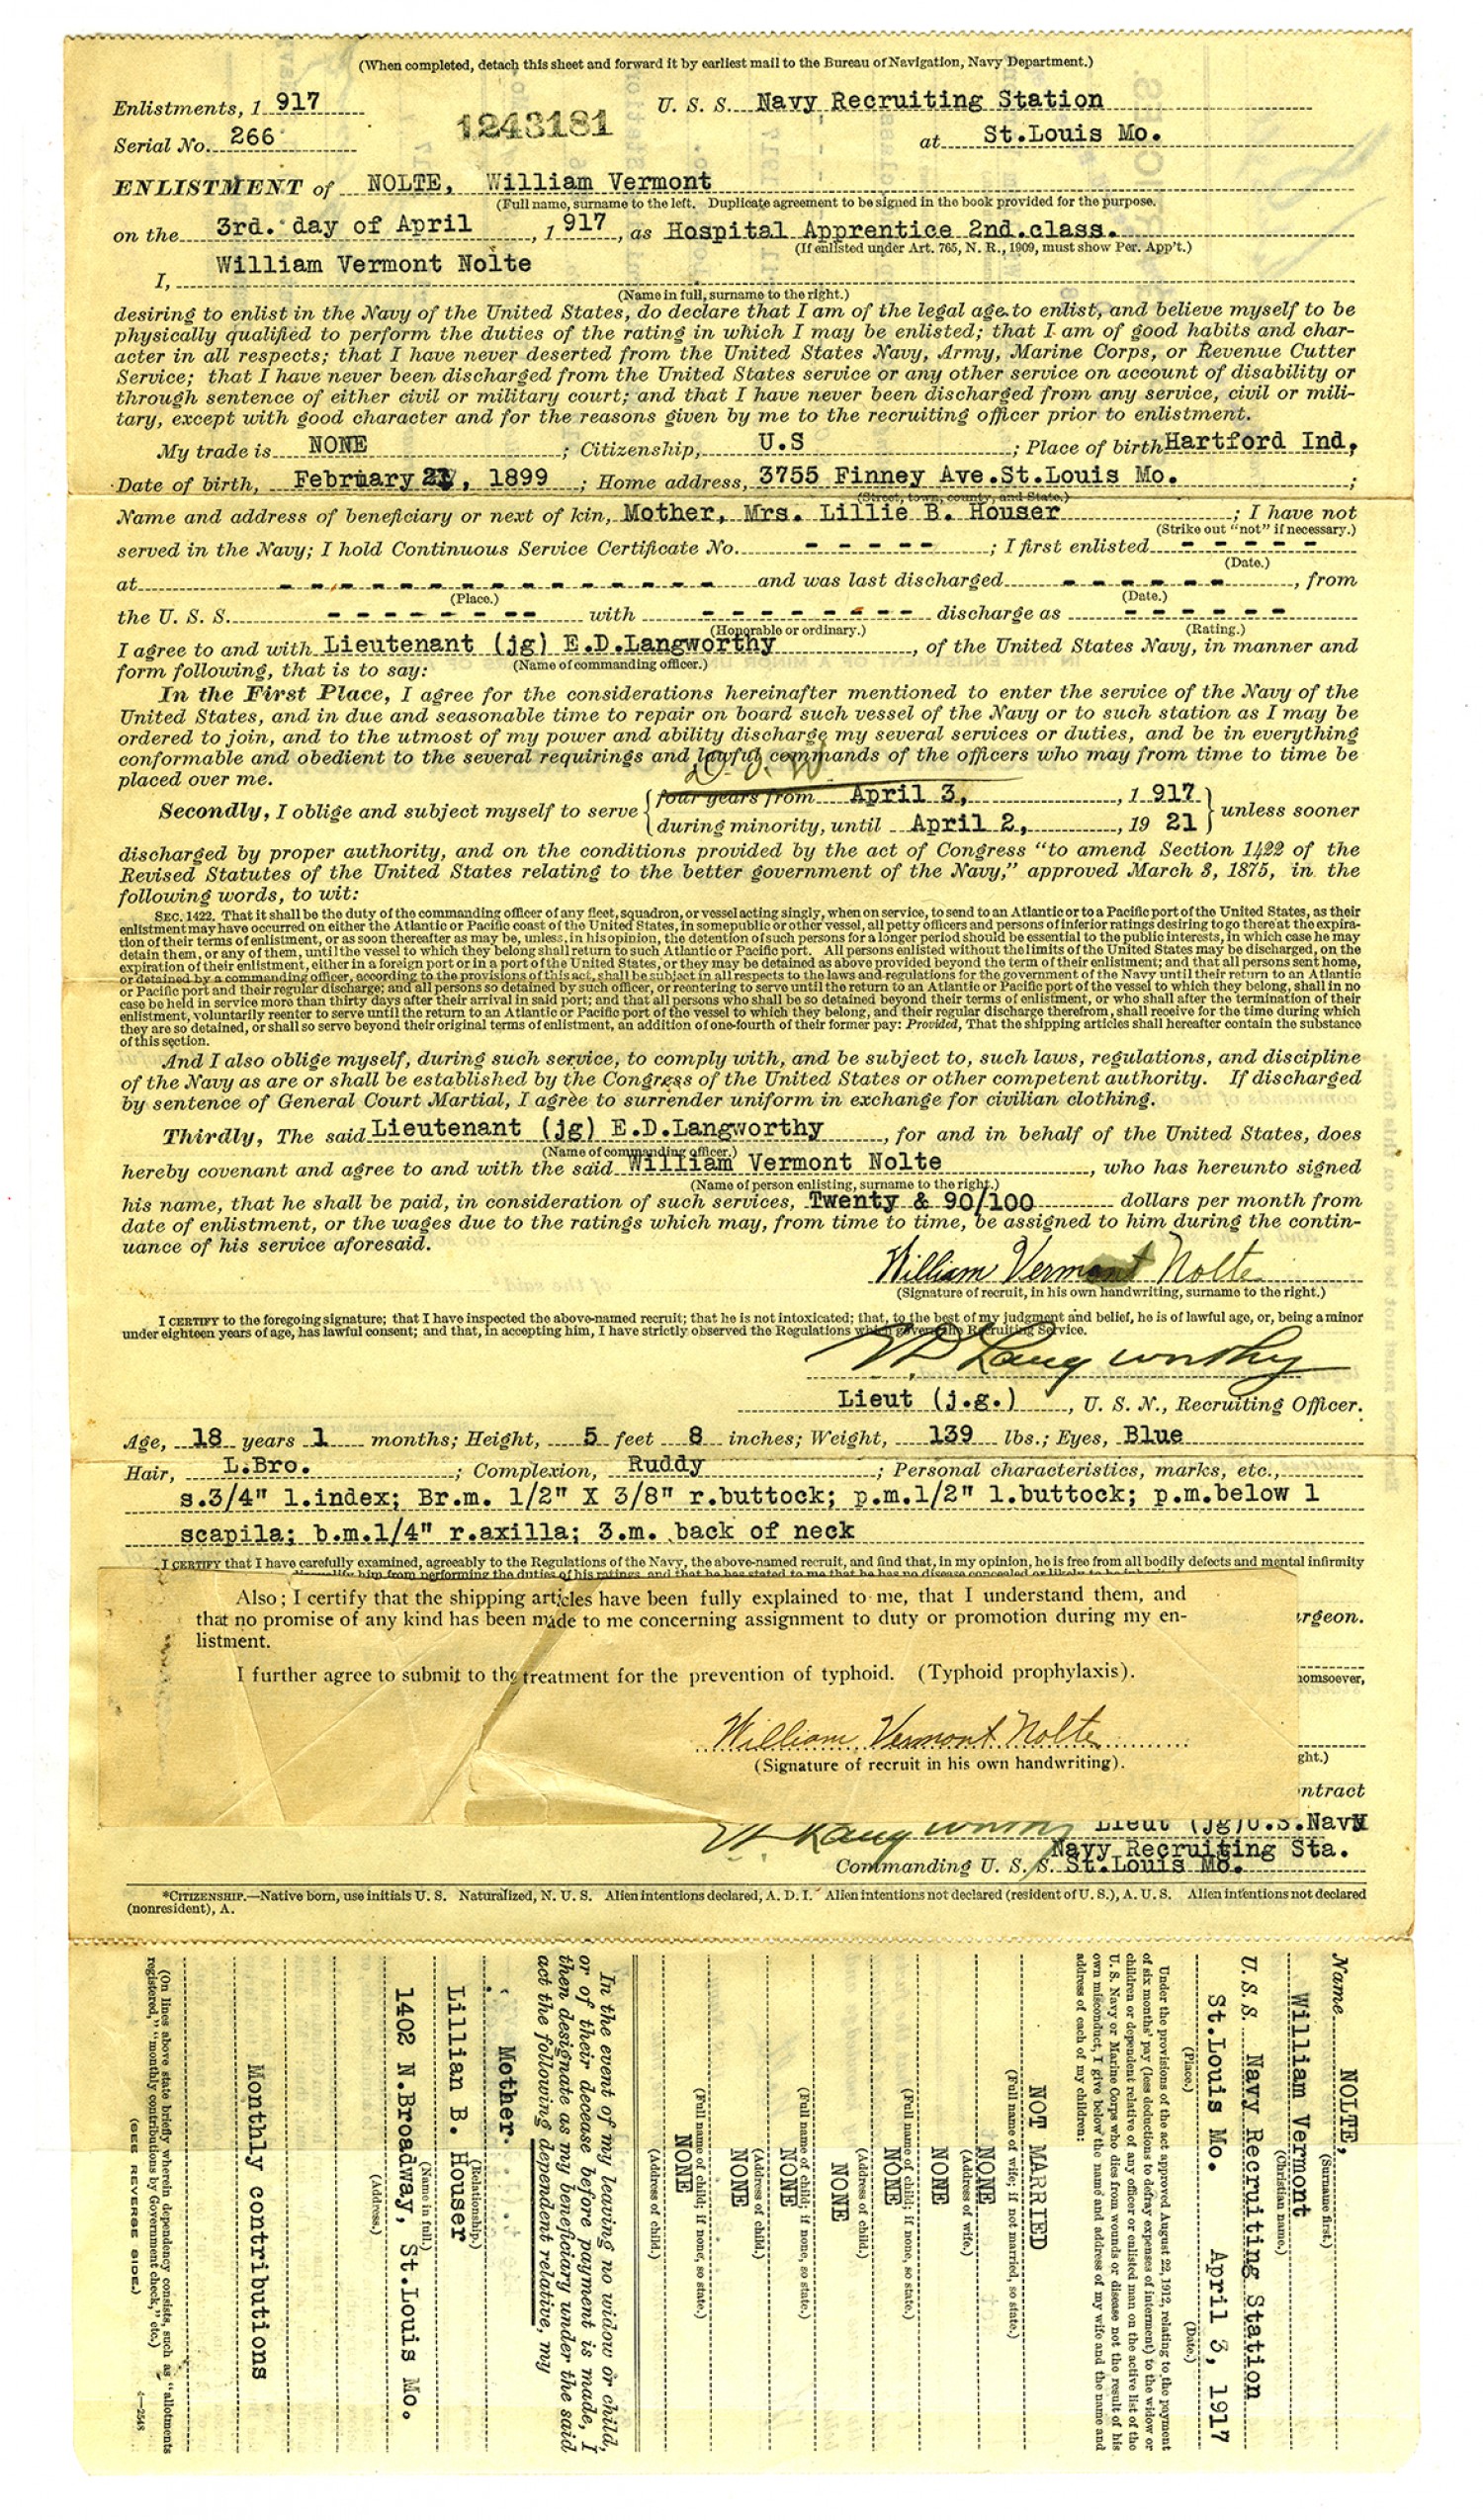 (When completed, detach this sheet and forward it by earliest mail to the Bureau of Navigation, Navy Department.)
Enlistments, 1 917 U. S. S. Navy Recruiting Station
1243181
Serial No. 266 at St.Louis Mo.
ENLISTMENT of NOLTE, William Vermont
(Full name, surname to the left. Duplicate agreement to be signed in the book provided for the purpose.
on the 3rd. day of April , 1 917 , as Hospital Apprentice 2nd.class.
(If enlisted under Art. 765, N. R., 1909, must show Per. App't.)
I, William Vermont Nolte
(Name in full, surname to the right.)
desiring to enlist in the Navy of the United States, do declare that I am of the legal age to enlist, and believe myself to be
physically qualified to perform the duties of the rating in which I may be enlisted; that I am of good habits and char-
acter in all respects; that I have never deserted from the United States Navy, Army, Marine Corps, or Revenue Cutter
Service; that I have never been discharged from the United States service or any other service on account of disability or
through sentence of either civil or military court; and that I have never been discharged from any service, civil or mili-
tary, except with good character and for the reasons given by me to the recruiting officer prior to enlistment.
My trade is NONE ; Citizenship, U.S ; Place of birth Hartford Ind,
Date of birth, February , 1899 ; Home address, 3755 Finney Ave.St.Louis Mo. ;
(Street, town, county, and State.)
Name and address of beneficiary or next of kin, Mother, Mrs. Lillie B. Houser ; I have not
(Strike out "not" if necessary.)
served in the Navy; I hold Continuous Service Certificate No. - - - - - ; I first enlisted - - - - -
(Date.)
at - - - - - - - - - - - - - - - and was last discharged - - - - - - , from
(Place.) (Date.)
the U. S. S. - - - - - - - - with - - - - - - - - discharge as - - - - - -
(Honorable or ordinary.) (Rating.)
I agree to and with Lieutenant (jg) E.D.Langworthy , of the United States Navy, in manner and
(Name of commanding officer.)
form following, that is to say:
In the First Place, I agree for the considerations hereinafter mentioned to enter the service of the Navy of the
United States, and in due and seasonable time to repair on board such vessel of the Navy or to such station as I may be
ordered to join, and to the utmost of my power and ability discharge my several services or duties, and be in everything
conformable and obedient to the several requirings and lawful commands of the officers who may from time to time be
placed over me.
Secondly, I oblige and subject myself to serve four years from April 3, , 1 917 unless sooner
during minority, until April 2, , 19 21
discharged by proper authority, and on the conditions provided by the act of Congress "to amend Section 1422 of the
Revised Statutes of the United States relating to the better government of the Navy," approved March 3, 1875, in the
following words, to wit:
SEC. 1422. That it shall be the duty of the commanding officer of any fleet, squadron, or vessel acting singly, when on service, to send to an Atlantic or to a Pacific port of the United States, as their
enlistment may have occurred on either the Atlantic or Pacific coast of the United States, in some public or other vessel, all petty officers and persons of inferior ratings desiring to go there at the expira-
tion of their terms of enlistment, or as soon thereafter as may be, unless, in his opinion, the detention of such persons for a longer period should be essential to the public interests, in which case he may
detain them, or any of them, until the vessel to which they belong shall return to such Atlantic or Pacific port. All persons enlisted without the limits of the United States may be discharged, on the
expiration of their enlistment, either in a foreign port or in a port of the United States, or they may be detained as above provided beyond the term of their enlistment; and that all persons sent home,
or detained by a commanding officer, according to the provisions of this act, shall be subject in all respects to the laws and regulations for the government of the Navy until their return to an Atlantic
or Pacific port and their regular discharge; and all persons so detained by such officer, or reentering to serve until the return to an Atlantic or Pacific port of the vessel to which they belong, shall in no
case be held in service more than thirty days after their arrival in said port; and that all persons who shall be so detained beyond their terms of enlistment, or who shall after the termination of their
enlistment, voluntarily reenter to serve until the return to an Atlantic or Pacific port of the vessel to which they belong, and their regular discharge therefrom, shall receive for the time during which
they are so detained, or shall so serve beyond their original terms of enlistment, an addition of one-fourth of their former pay: Provided, That the shipping articles shall hereafter contain the substance
of this section.
And I also oblige myself, during such service, to comply with, and be subject to, such laws, regulations, and discipline
of the Navy as are or shall be established by the Congress of the United States or other competent authority. If discharged
by sentence of General Court Martial, I agree to surrender uniform in exchange for civilian clothing.
Thirdly, The said Lieutenant (jg) E.D.Langworthy , for and in behalf of the United States, does
(Name of commanding officer.)
hereby covenant and agree to and with the said William Vermont Nolte , who has hereunto signed
(Name of person enlisting, surname to the right.)
his name, that he shall be paid, in consideration of such services, Twenty & 90/100 dollars per month from
date of enlistment, or the wages due to the ratings which may, from time to time, be assigned to him during the contin-
uance of his service aforesaid.
William Vermont Nolte
(Signature of recruit, in his own handwriting, surname to the right.)
I CERTIFY to the foregoing signature; that I have inspected the above-named recruit; that he is not intoxicated; that, to the best of my judgment and belief, he is of lawful age, or, being a minor
under eighteen years of age, has lawful consent; and that, in accepting him, I have strictly observed the Regulations which govern the Recruiting Service.
E D Langworthy
Lieut (j.g.) , U. S. N., Recruiting Officer.
Age, 18 years 1 months; Height, 5 feet 8 inches; Weight, 139 lbs.; Eyes, Blue
Hair, L.Bro. ; Complexion, Ruddy ; Personal characteristics, marks, etc.,
s.3/4" l.index; Br.m. 1/2" X 3/8" r.buttock; p.m.1/2" l.buttock; p.m.below l
scapila; b.m.1/4" r.axilla; 3.m. back of neck
I CERTIFY that I have carefully examined, agreeably to the Regulations of the Navy, the above-named recruit, and find that, in my opinion, he is free from all bodily defects and mental infirmity
him from performing the duties of his ratings, and that he has stated to me that he has no disease concealed or likely to be
Also; I certify that the shipping articles have been fully explained to me, that I understand them, and
that no promise of any kind has been made to me concerning assignment to duty or promotion during my en-
listment.
rgeon.
I further agree to submit to the treatment for the prevention of typhoid. (Typhoid prophylaxis).
omsoever,
William Vermont Nolte
(Signature of recruit in his own handwriting).
ght.)
ntract
E D Langworthy Lieut (jg)U.S.Navy
Navy Recruiting Sta.
Commanding U. S. S. St.Louis Mo.
*CITIZENSHIP.—Native born, use initials U. S. Naturalized, N. U. S. Alien intentions declared, A. D. I. Alien intentions not declared (resident of U. S.), A. U. S. Alien intentions not declared
(nonresident), A.
Name NOLTE,
(Surname first.)
William Vermont
(Christian name.)
U. S. S. Navy Recruiting Station
St.Louis Mo. April 3, 1917
(Place.) (Date.)
Under the provisions of the act approved August 22, 1912, relating to the payment
of six months' pay (less deductions to defray expenses of interment) to the widow or
children or dependent relative of any officer or enlisted man on the active list of the
U. S. Navy or Marine Corps who dies from wounds or disease not the result of his
own misconduct, I give below the name and address of my wife and the name and
address of each of my children:
NOT MARRIED
(Full name of wife; if not married, so state.)
NONE
(Address of wife.)
NONE
(Full name of child; if none, so state.)
NONE
(Address of child.)
NONE
(Full name of child; if none, so state.)
NONE
(Address of child.)
NONE
(Full name of child; if none, so state.)
NONE
(Address of child.)
In the event of my leaving no widow or child,
or of their decease before payment is made, I
then designate as my beneficiary under the said
act the following dependent relative, my
Mother
(Relationship.)
Lillian B. Houser
(Name in full.)
1402 N.Broadway, St.Louis Mo.
(Address.)
Monthly contributions
(On lines above state briefly wherein dependency consists, such as "allotments
registered," "monthly contributions by Government check," etc.)
(SEE REVERSE SIDE.) 4—2548